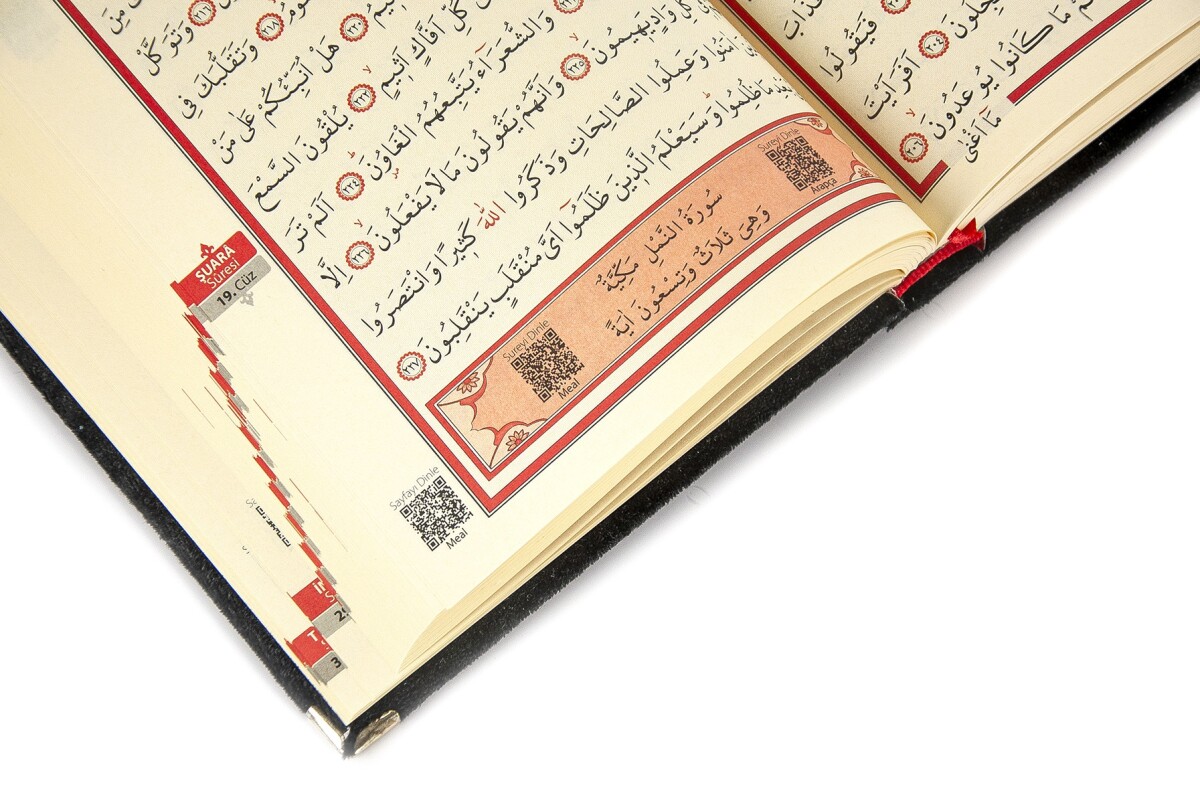 مَا كَانُوا يُوعَدُونَ ﴿٢٠٦﴾
مَا اَغْنٰى
فَيَقُولُوا
اَفَرَاَيْتَ
وَتَوَكَّلْ
وَتَقَلُّبَكَ فِى
هَلْ اُنَبِّئُكُمْ عَلٰى مَنْ
كُلِّ اَفَّاكٍ اَثِيمٍ ﴿٢٢٢﴾ يُلْقُونَ السَّمْعَ
وَالشُّعَرَاءُ يَتَّبِعُهُمُ الْغَاوُنَ ﴿٢٢٤﴾ اَلَمْ تَرَ
وَادٍ يَهِيمُونَ ﴿٢٢٥﴾ وَاَنَّهُمْ يَقُولُونَ مَا لَا يَفْعَلُونَ ﴿٢٢٦﴾ اِلَّا
اٰمَنُوا وَعَمِلُوا الصَّالِحَاتِ وَذَكَرُوا اللّٰهَ كَثِيرًا وَانْتَصَرُوا
مَا ظُلِمُوا وَسَيَعْلَمُ الَّذِينَ ظَلَمُوا اَىَّ مُنْقَلَبٍ يَنْقَلِبُونَ ﴿٢٢٧﴾
سُورَةُ النَّمْلِ مَكِّيَّةٌ
وَهِىَ ثَلَاثٌ وَتِسْعُونَ اٰيَةً
Sureyi Dinle
Arapça
Sureyi Dinle
Meal
Sayfayı Dinle
Meal
ŞUARA
Suresi
19. Cüz